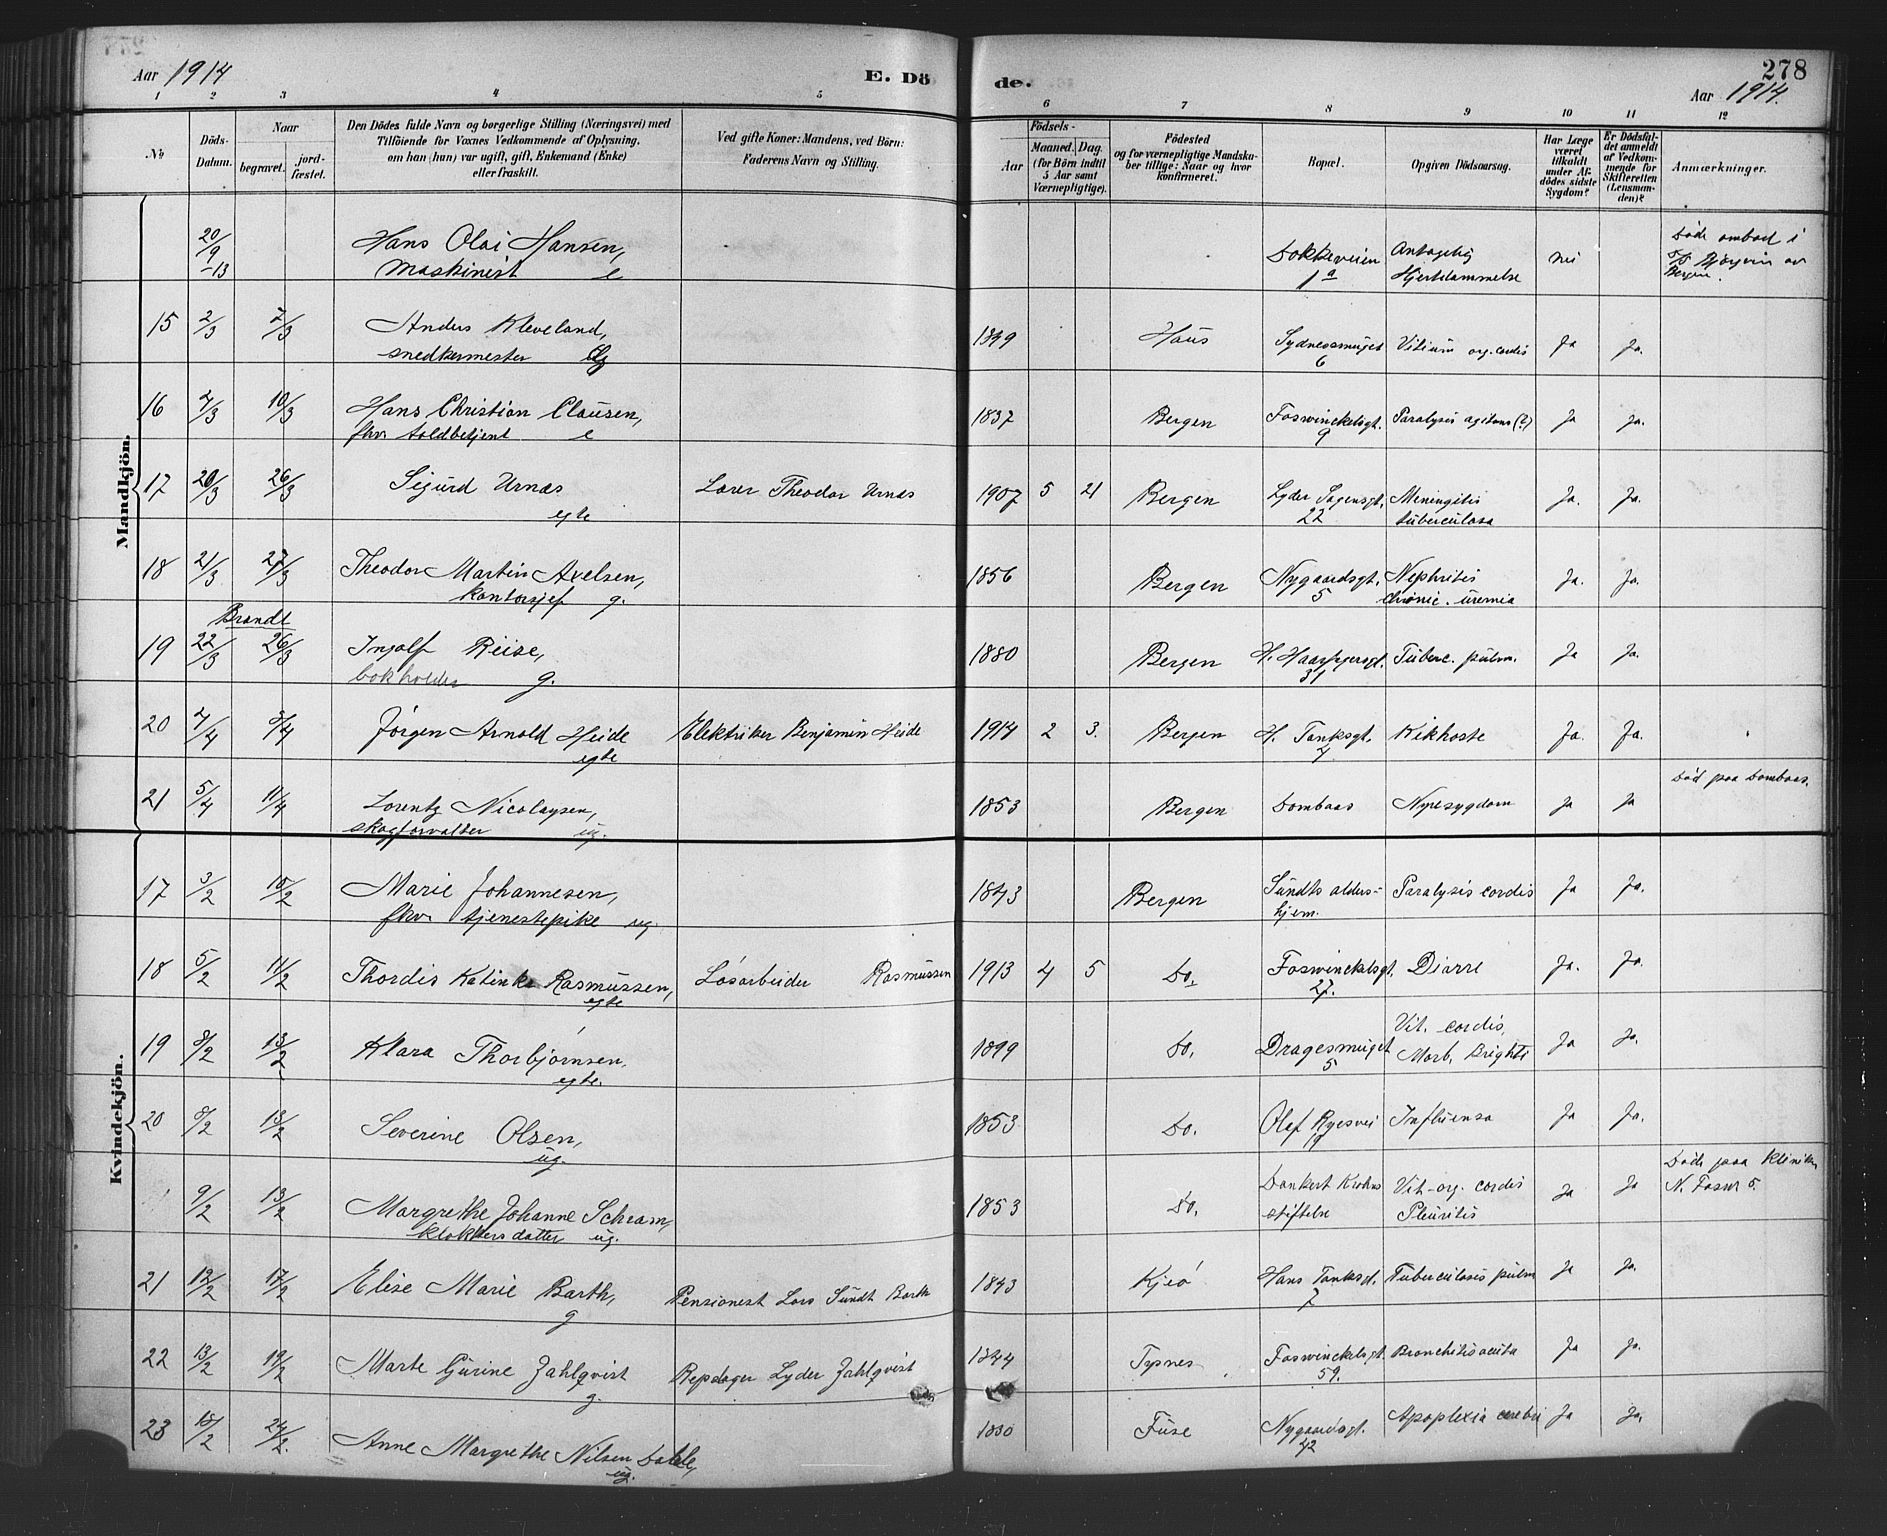 Aar 1914
E. Dö
de.
278
Aar 1914.
1 2 3 4 5 6 7 8 9 10 11 12
No
Döds-Datum.
Naar
begravet.
jord-fæstet.
Den Dödes fulde Navn og borgerlige Stilling (Næringsvei) med
Tilföiende for Voxnes Vedkommende af Oplysning,
om han (hun) var ugift, gift, Enkemand (Enke)
eller fraskilt.
Ved gifte Koner: Mandens, ved Börn:
Faderens Navn og Stilling.
Födsels-
Aar
Maaned.
Dag.
(for Börn indtil
5 Aar samt
Værnepligtige).
Födested
og for værnepligtige Mandsku-
ber tillige: Naar og hvor
konfirmeret.
Bopæl.
Opgiven Dödsaarsag.
Har Læge
været
tilkaldt
under Af-
dödes sidste
Sygdom?
Er Dödsfal-
det anmeldt
af Vedkom-
mende for
Skifteretten
(Lensman-
den)?
Anmærkninger.
Mandkjön.
20/9 -13 Hans Olai Hansen, Dokkeveien Antagelig nei Døde ombord i
maskinist e 1a Hjertelammelse
15 2/3 7/3 Anders Kleveland, Haus Sydnessmuget Vitium org. cordis Ja Ja.
snedkermester 6
16 4/3 10/3 Hans Christian Clausen, 1837 Bergen Foswinckelsgt. Paralysis agitans (?) Ja Ja.
fhv. toldbetjent e 9
17 20/3 26/3 Sigurd Urnæs Lærer Theodor Urnæs 1907 5 21 Bergen Lyder Sagensgt. Meningitis Ja. Ja.
egte 22 tuberculosa
18 21/3 27/3 Theodor Martin Axelsen, 1856 Bergen Nygaardsgt. Nephritis Ja. Ja.
kontorsjef g. 5 chronic. uremia
Brandt
19 22/3 26/3 Ingolf Reise, 1880 Bergen H. Haarfagersgt. Tuberc. pulm. Ja Ja.
bokholder g. 31
20 2/4 8/4 Jørgen Arnold Heide Elektriker Benjamin Heide 1914 2 3. Bergen H. Tanksgt. Kikhoste Ja. Ja.
egte 4
21 5/4 11/4 Lorentz Nicolaysen, 1853 Bergen Dombaas Nyresygdom Ja Ja Død paa Dombaas.
skogforvalter ug.
Kvindekjön.
17 3/2 10/2 Marie Johannesen, 1843 Bergen Sundts alders- Paralysis cordis Ja Ja.
fhv tjenestepike ug hjem.
18 5/2 11/2 Thordis Katinka Rasmussen, Løsarbeider Rasmussen 1913 4 5 Do. Foswinckelsgt. Diarre Ja. Ja.
egte 27.
19 8/2 13/2 Klara Thorbjørnsen. 1899 Do. Dragesmuget Vit. cordis, Ja Ja.
egte. 5 Morb. Brighti
20 8/2 13/2 Severine Olsen, 1853 Do. Olaf Ryesvei Influensa Ja Ja.
ug.
9/2 13/2 Margrethe Johanne Schram, 1853 Do. Dankert Krohns Vit. org. cordis Ja Ja Døde paa klinikken
klokkersdatter ug. stiftelse Pleuritis
21 12/2 17/2 Elise Marie Barth, Pensionist Lars Sundt Barth 1843 Kjeø Hans Tanksgt. Tuberculosis pulm Ja Ja.
g 7
22 13/2 19/2 Marte Gurine Zahlqvist Repslager Lyder Zahlqvist 1844 Tysnes Foswinckelsgt. Bronchitis acuta Ja Ja.
g. 59.
23 18/2 24/2. Anne Margrethe Nilsen Dahle, 1830 Fuse Nygaardsgt. Apoplexia cerebri Ja Ja.
ug. 42